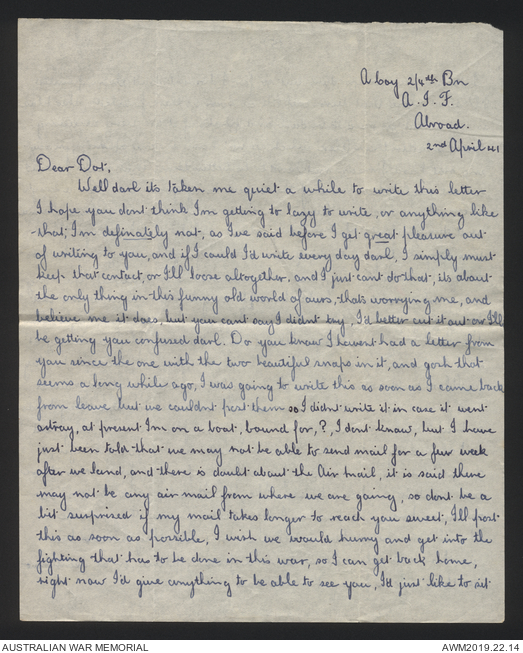 A boy 2/4th Bn
A.I.F.
Abroad.
2nd April 41
Dear Dot,
Well darl its taken me quiet a while to write this letter
I hope you dont think I'm getting to lazy to write, or anything like
that; I'm definately not, as I've said before I get great pleasure out
of writing to you, and if I could I'd write every day darl, I simply must
keep that contact, or I'll loose altogether, and I just cant do that, its about
the only thing in this funny old world of ours, thats worrying me, and
believe me it does, but you cant say I didnt try, I'd better cut it out or I'll
be getting you confused darl. Do you know I havent had a letter from
you since the one with the two beautiful snaps in it, and gosh that
seems a long while ago, I was going to write this as soon as I came back
from leave but we couldnt post them so I didnt write it in case it went
astray, at present I'm on a boat, bound for, ?, I dont know, but I have
just been told that we may not be able to send mail for a few week
after we land, and there is doubt about the Air mail, it is said there
may not be any air mail from where we are going, so dont be a
bit surprised if my mail takes longer to reach you sweet, I'll post
this as soon as possible, I wish we would hurry and get into the
fighting that has to be done in this war, so I can get back home,
right now I'd give anything to be able to see you, I'd just like to sit
AUSTRALIAN WAR MEMORIAL
AWM2019.22.14